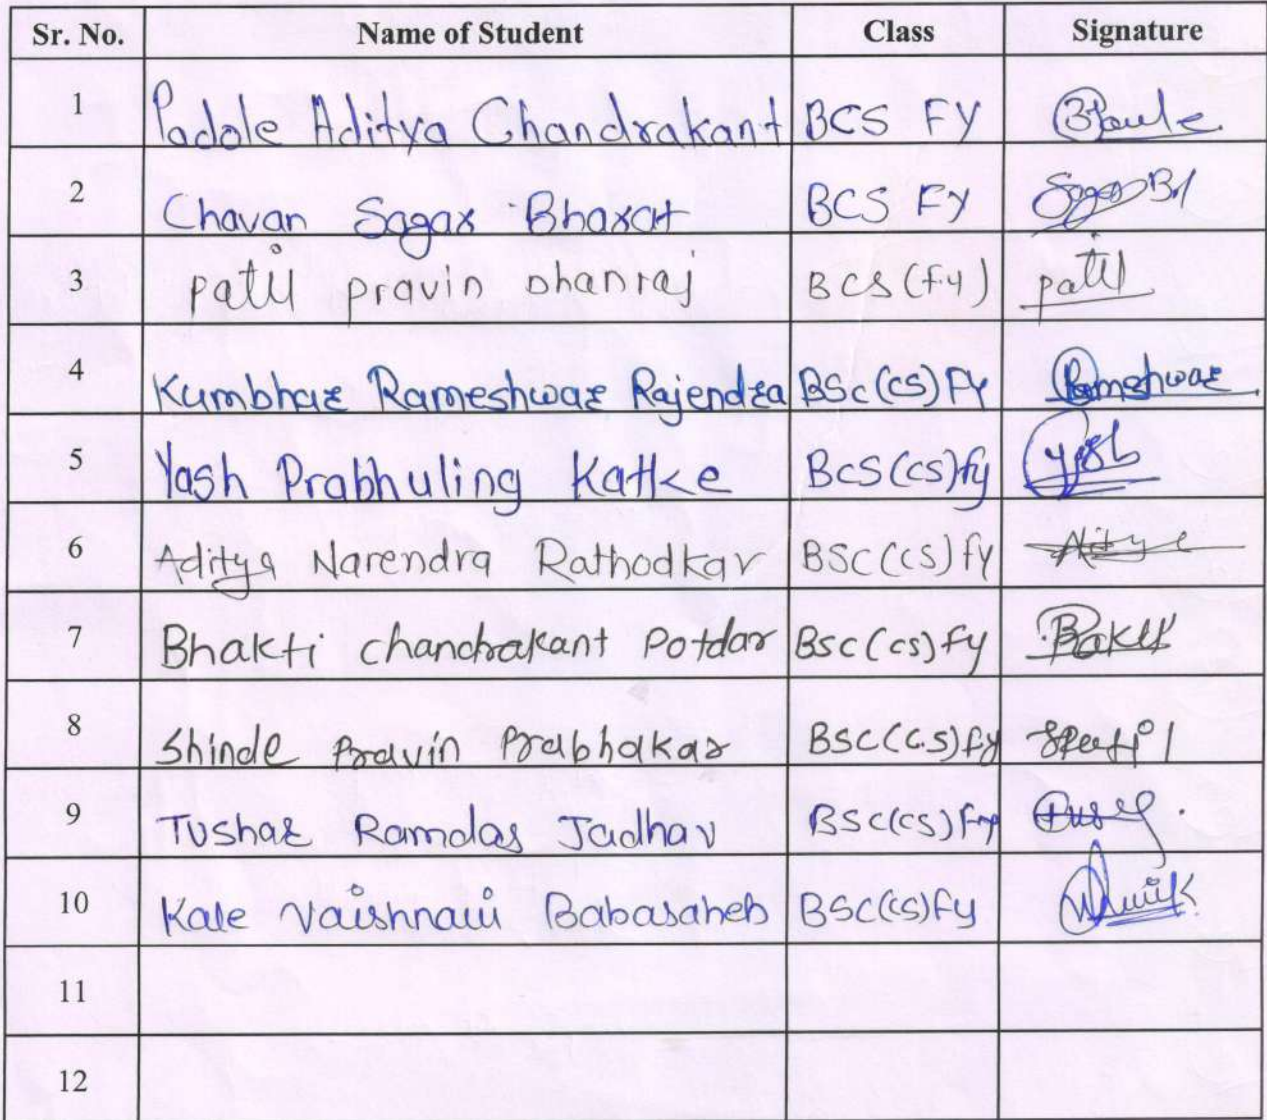 Sr. No. Name of Student Class Signature
1 Padole Aditya Chandrakant BCS FY
2 Chavan Sagar Bharat BCS FY
3 patil pravin Dhanraj BCS (f.y) patil
4 Kumbhar Rameshwar Rajendra BSc(CS) Fy Rameshwar
5 Yash Prabhuling Katke BCS(CS)fy Yash
6 Aditya Narendra Rathodkar BSc(CS)fy Aditya
7 Bhakti chandrakant Potdar BSc(CS)fy
8 Shinde Pravin Prabhakar BSC(C.S)fy
9 Tushar Ramdas Jadhav BSc(CS)
10 Kale Vaishnavi Babasaheb BSC(CS)Fy
11
12